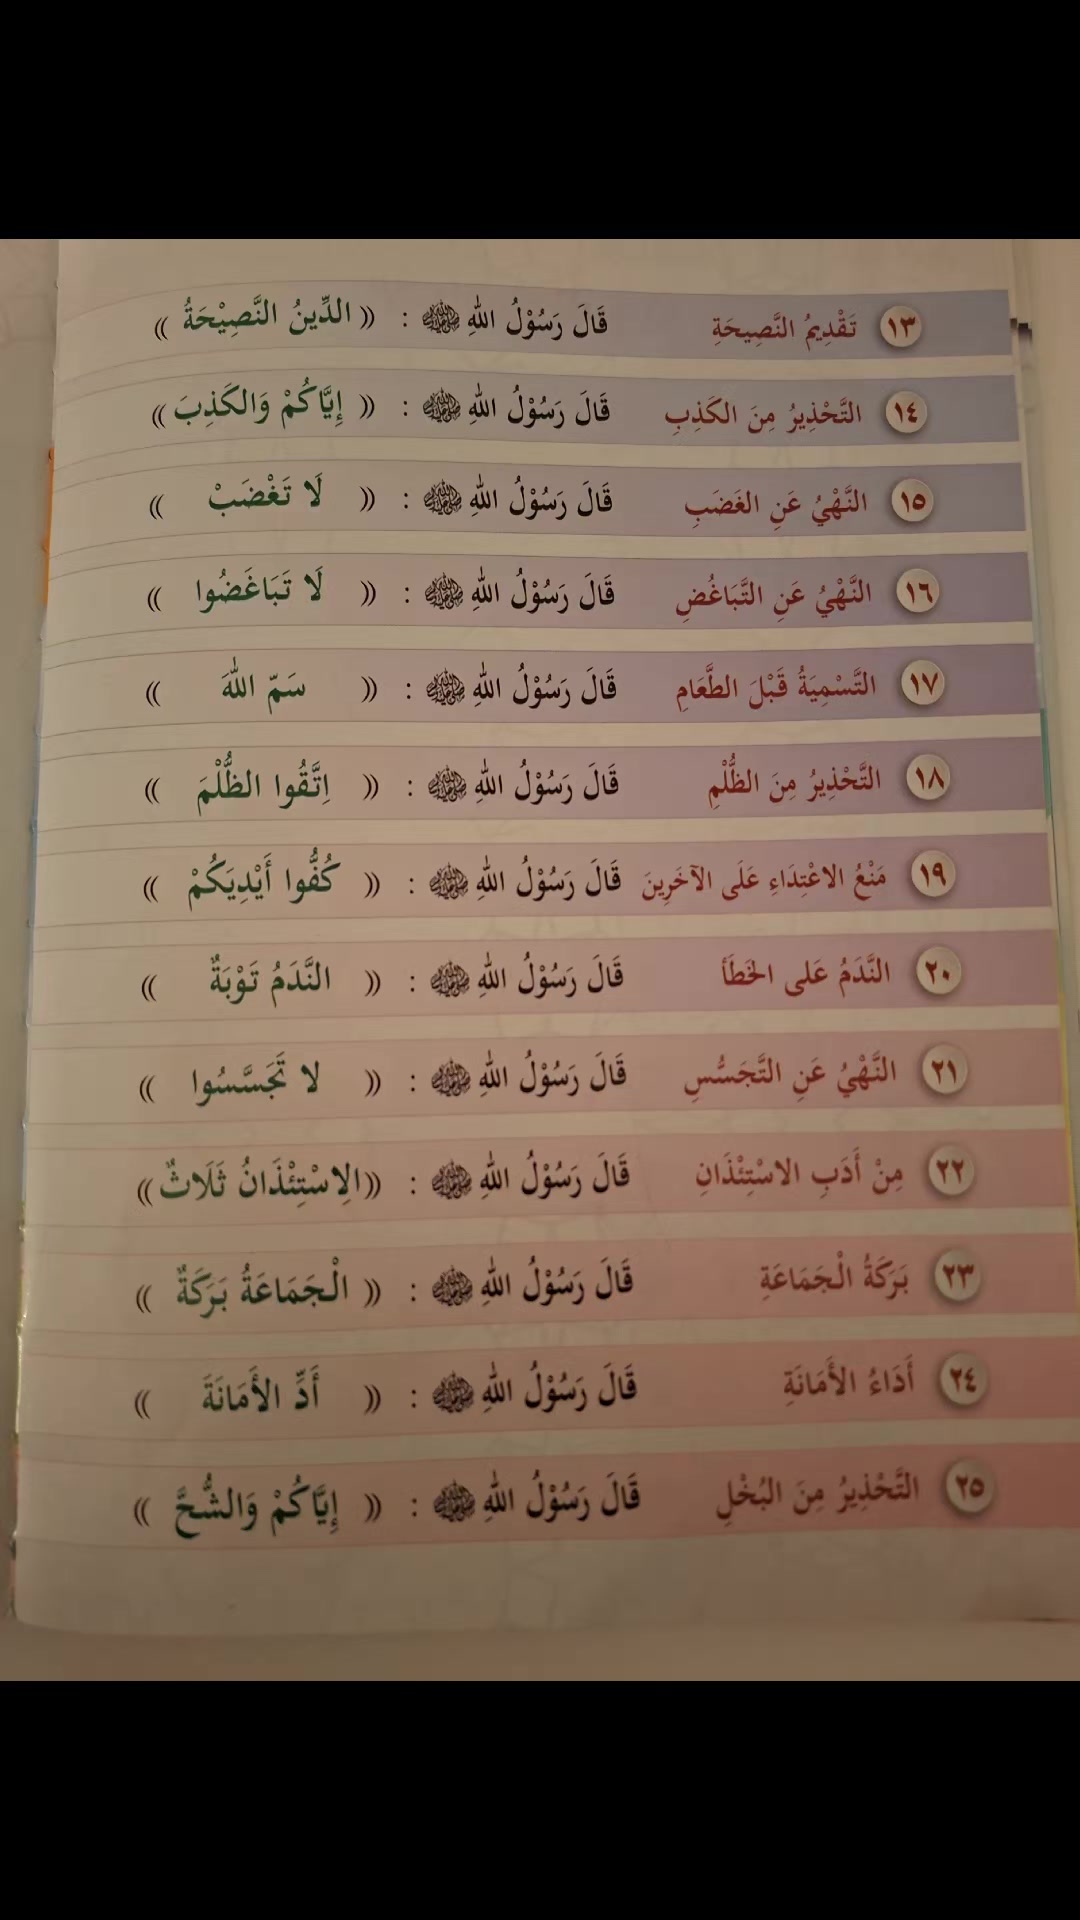 ١٣ تَقْدِيمُ النَّصِيحَةِ قَالَ رَسُوْلُ اللهِ ﷺ : (( الدِّينُ النَّصِيْحَةُ ))
١٤ التَّحْذِيرُ مِنَ الكَذِبِ قَالَ رَسُوْلُ اللهِ ﷺ : (( إِيَّاكُمْ وَالكَذِبَ ))
١٥ النَّهْيُ عَنِ الغَضَبِ قَالَ رَسُوْلُ اللهِ ﷺ : (( لَا تَغْضَبْ ))
١٦ النَّهْيُ عَنِ التَّبَاغُضِ قَالَ رَسُوْلُ اللهِ ﷺ : (( لَا تَبَاغَضُوا ))
١٧ التَّسْمِيَةُ قَبْلَ الطَّعَامِ قَالَ رَسُوْلُ اللهِ ﷺ : (( سَمّ اللهَ ))
١٨ التَّحْذِيرُ مِنَ الظُّلْمِ قَالَ رَسُوْلُ اللهِ ﷺ : (( اِتَّقُوا الظُّلْمَ ))
١٩ مَنْعُ الاعْتِدَاءِ عَلَى الآخَرِينَ قَالَ رَسُوْلُ اللهِ ﷺ : (( كُفُّوا أَيْدِيَكُمْ ))
٢٠ النَّدَمُ عَلى الخَطَأ قَالَ رَسُوْلُ اللهِ ﷺ : (( النَّدَمُ تَوْبَةٌ ))
٢١ النَّهْيُ عَنِ التَّجَسُّسِ قَالَ رَسُوْلُ اللهِ ﷺ : (( لا تَجَسَّسُوا ))
٢٢ مِنْ أَدَبِ الاسْتِئْذَانِ قَالَ رَسُوْلُ اللهِ ﷺ : ((الِاسْتِئْذَانُ ثَلَاثٌ))
٢٣ بَرَكَةُ الْجَمَاعَةِ قَالَ رَسُوْلُ اللهِ ﷺ : (( الْجَمَاعَةُ بَرَكَةٌ ))
٢٤ أَدَاءُ الأَمَانَةِ قَالَ رَسُوْلُ اللهِ ﷺ : (( أَدِّ الأَمَانَةَ ))
٢٥ التَّحْذِيرُ مِنَ البُخْلِ قَالَ رَسُوْلُ اللهِ ﷺ : (( إِيَّاكُمْ وَالشُّحَّ ))